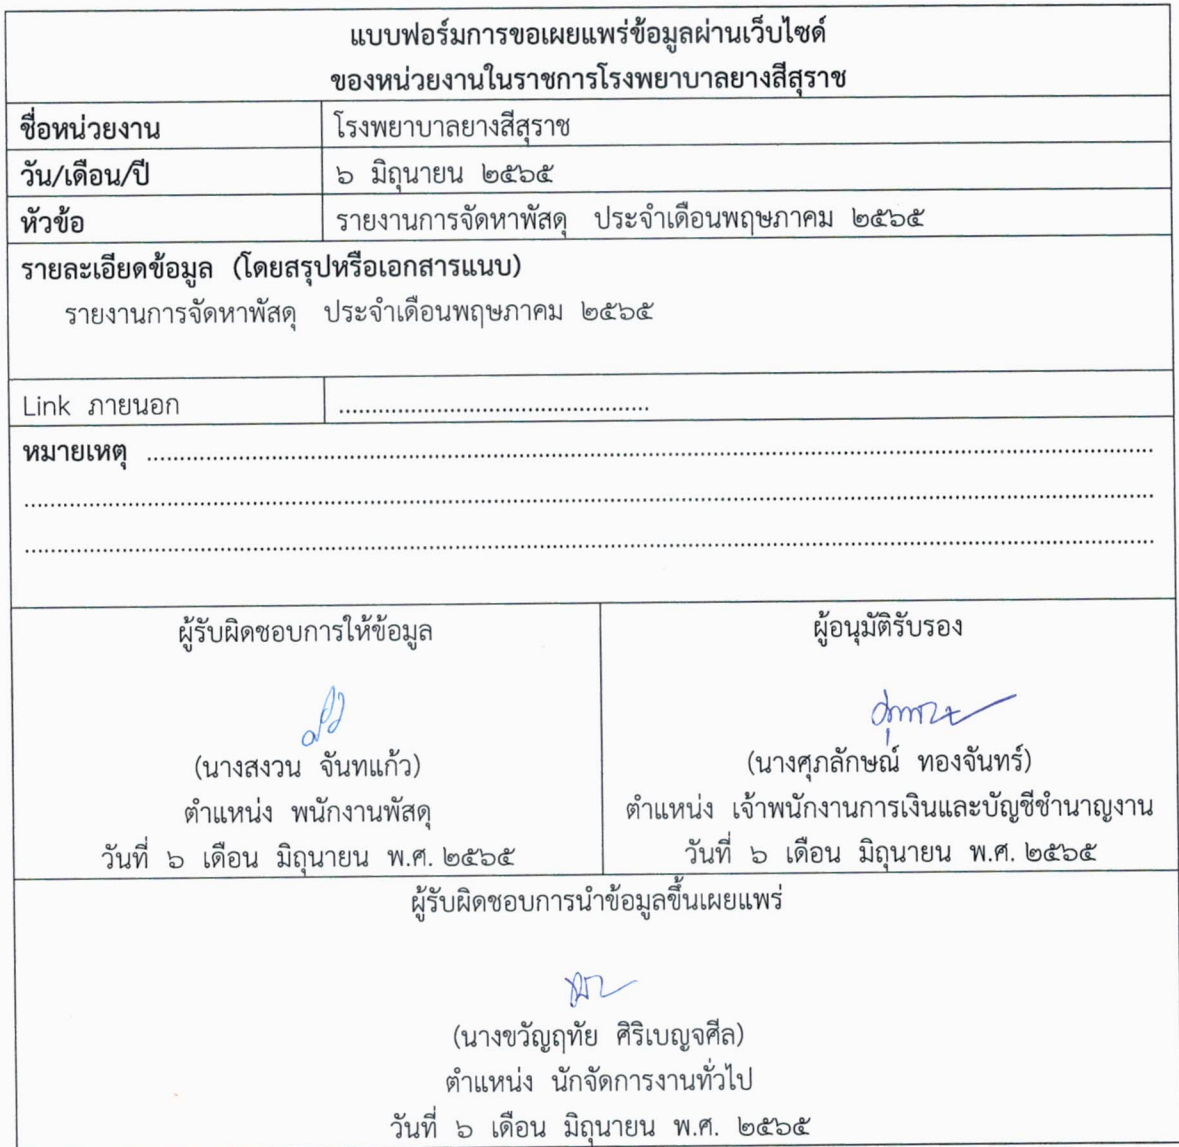 แบบฟอร์มการขอเผยแพร่ข้อมูลผ่านเว็บไซต์
ของหน่วยงานในราชการโรงพยาบาลยางสีสุราช
ชื่อหน่วยงาน โรงพยาบาลยางสีสุราช
วัน/เดือน/ปี ๖ มิถุนายน ๒๕๖๕
หัวข้อ รายงานการจัดหาพัสดุ ประจำเดือนพฤษภาคม ๒๕๖๕
รายละเอียดข้อมูล (โดยสรุปหรือเอกสารแนบ)
รายงานการจัดหาพัสดุ ประจำเดือนพฤษภาคม ๒๕๖๕
Link ภายนอก ................................................
หมายเหตุ ................................................................................
................................................................................
................................................................................
ผู้รับผิดชอบการให้ข้อมูล
(นางสงวน จันทแก้ว)
ตำแหน่ง พนักงานพัสดุ
วันที่ ๖ เดือน มิถุนายน พ.ศ. ๒๕๖๕
ผู้อนุมัติรับรอง
(นางศุภลักษณ์ ทองจันทร์)
ตำแหน่ง เจ้าพนักงานการเงินและบัญชีชำนาญงาน
วันที่ ๖ เดือน มิถุนายน พ.ศ. ๒๕๖๕
ผู้รับผิดชอบการนำข้อมูลขึ้นเผยแพร่
(นางขวัญฤทัย ศิริเบญจศีล)
ตำแหน่ง นักจัดการงานทั่วไป
วันที่ ๖ เดือน มิถุนายน พ.ศ. ๒๕๖๕